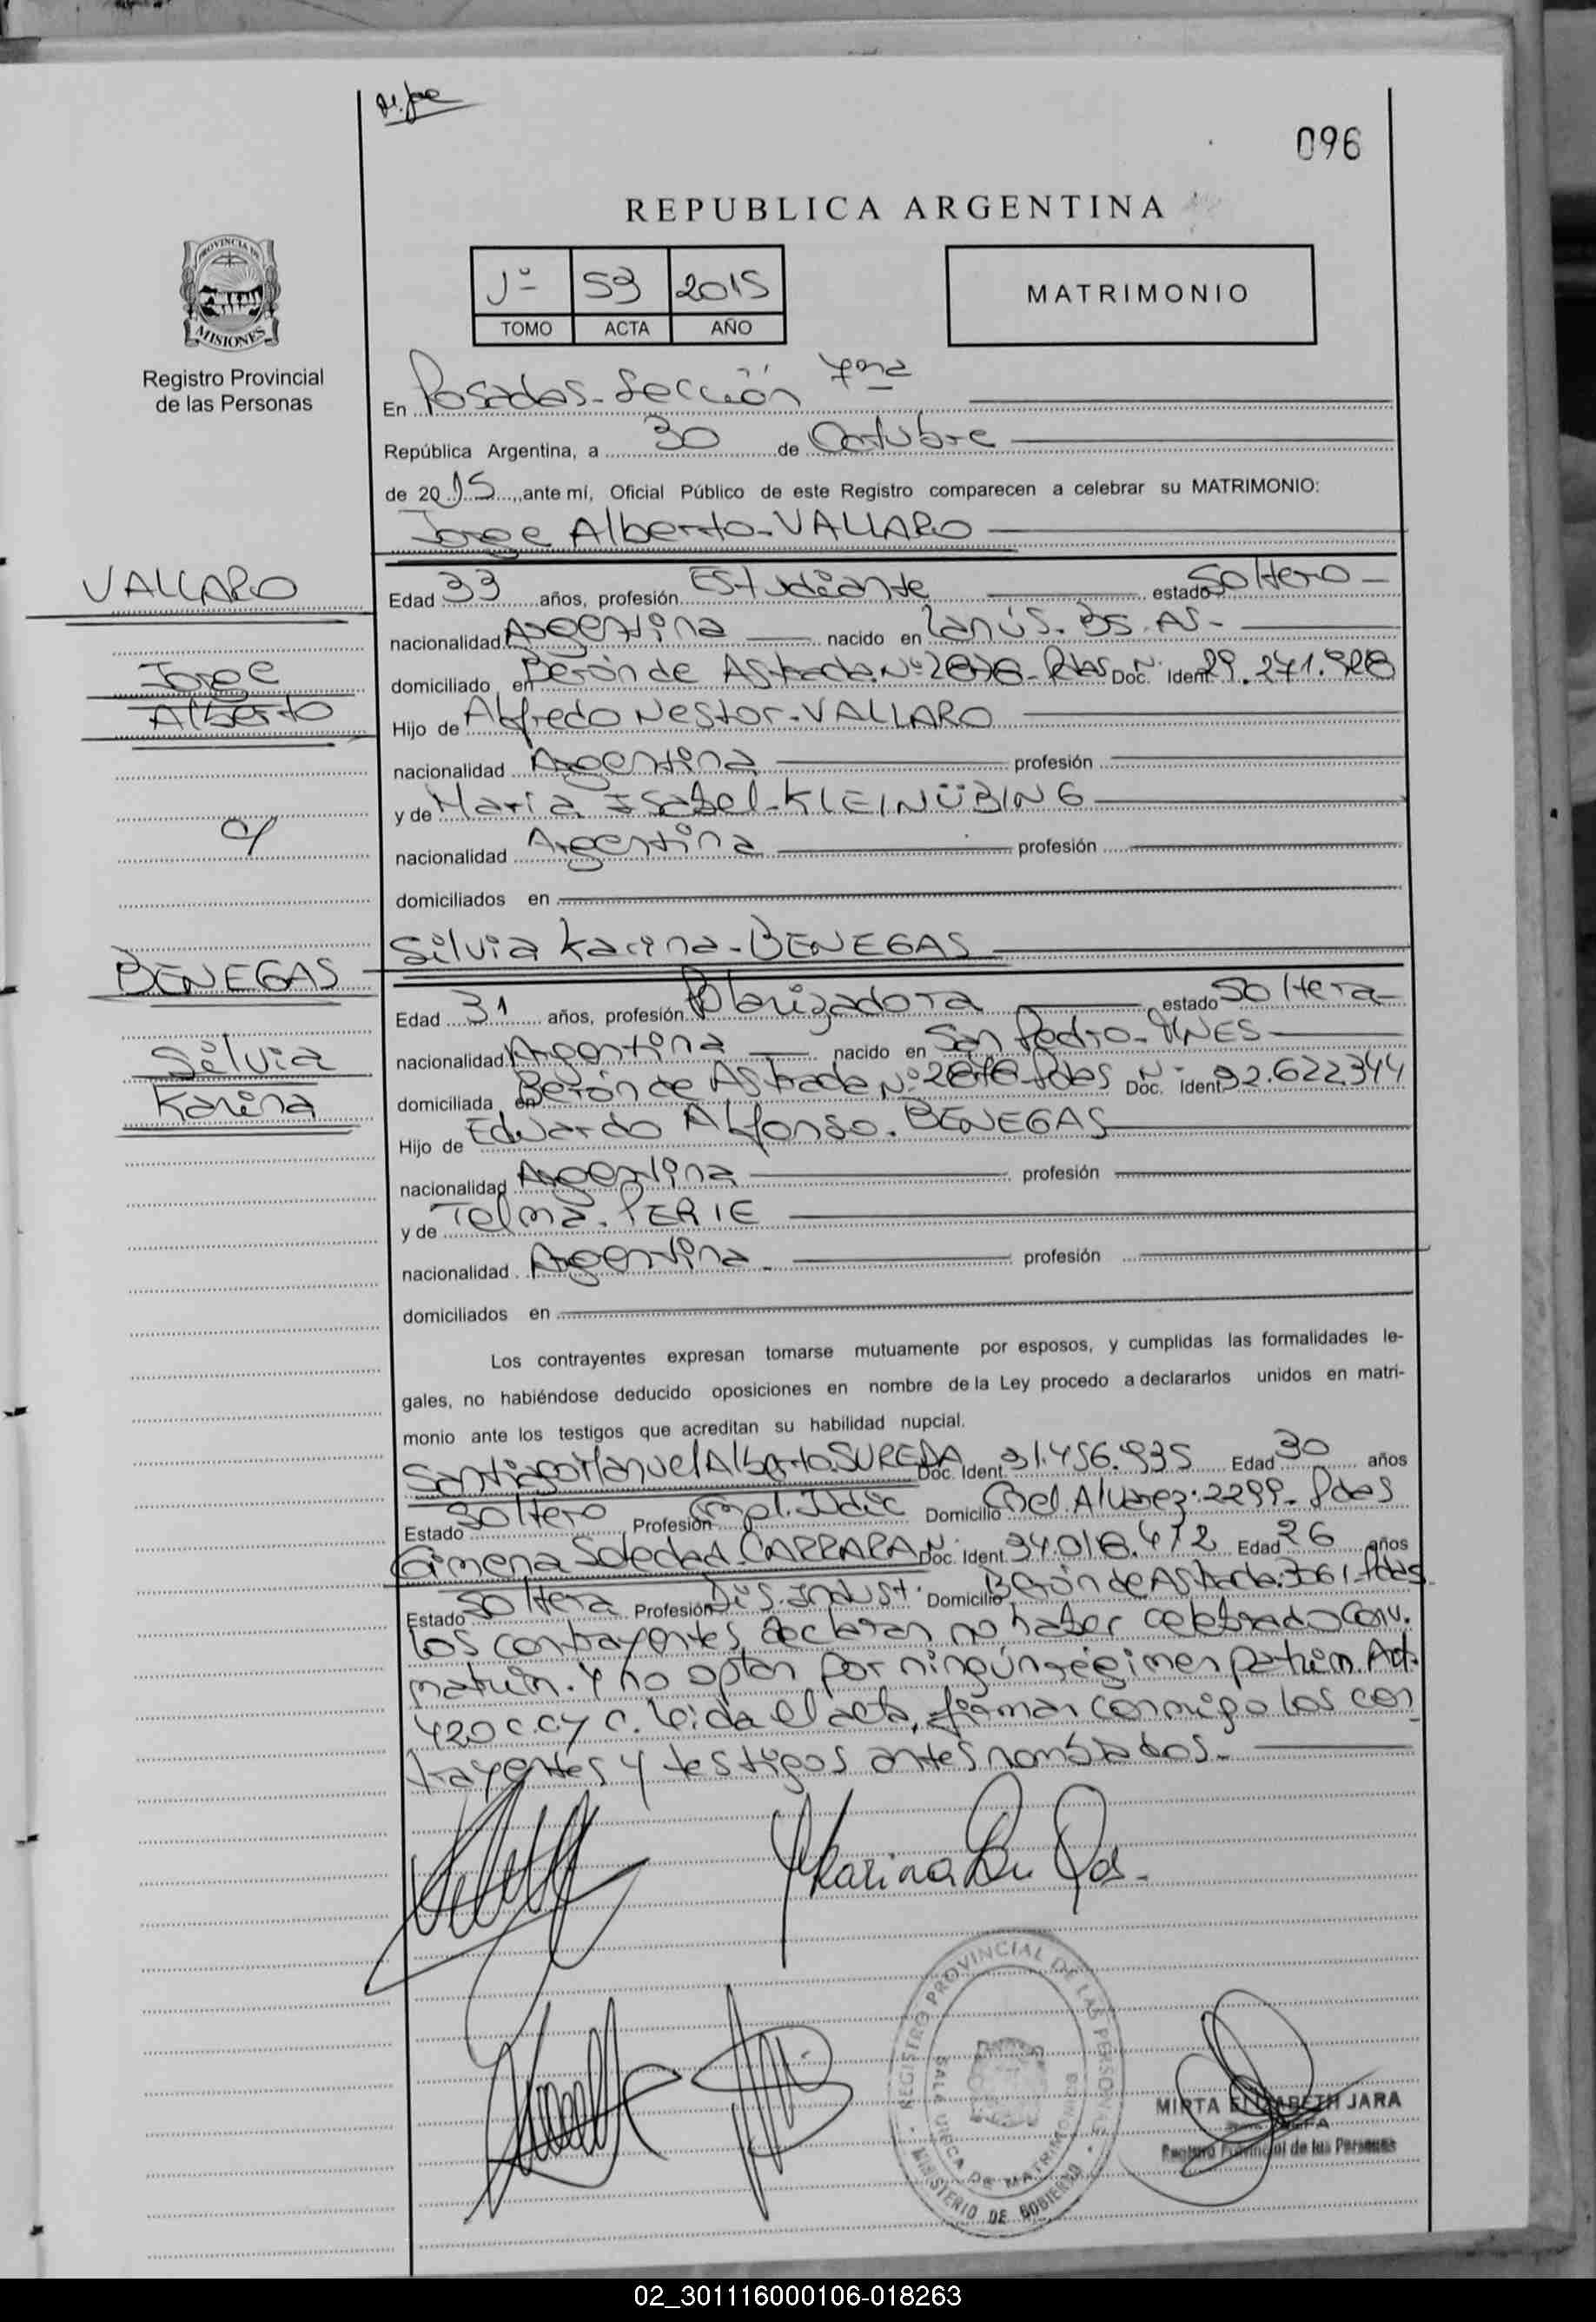 096
REPUBLICA ARGENTINA
PROVINCIA DE
MISIONES
Registro Provincial
de las Personas
Jº 53 2015
TOMO ACTA AÑO
MATRIMONIO
En Posadas-Sección 7ma
República Argentina, a 30 de Octubre
de 2015, ante mí, Oficial Público de este Registro comparecen a celebrar su MATRIMONIO:
Jorge Alberto-VALLARO
VALLARO
Jorge
Alberto
c/
BENEGAS
Silvia
Karina
Edad 33 años, profesión Estudiante estado Soltero
nacionalidad Argentina nacido en Lanús-Bs.As-
domiciliado en Berón de Astrada Nº Pdas Doc. N. Ident. 29.271.928
Hijo de Alfredo Nestor-VALLARO
nacionalidad Argentina profesión
y de María Isabel-KLEINÜBING
nacionalidad Argentina profesión
domiciliados en
Silvia Karina-BENEGAS
Edad 31 años, profesión Polarizadora estado Soltera
nacionalidad Argentina nacido en San Pedro-MNES
domiciliada en Berón de Astrada Nº Pdas Doc. N. Ident. 32.622344
Hijo de Eduardo Alfonso-BENEGAS
nacionalidad Argentina profesión
y de Telma-PERIE
nacionalidad Argentina profesión
domiciliados en
Los contrayentes expresan tomarse mutuamente por esposos, y cumplidas las formalidades le-
gales, no habiéndose deducido oposiciones en nombre de la Ley procedo a declararlos unidos en matri-
monio ante los testigos que acreditan su habilidad nupcial.
Santiago Manuel Alberto SUREDA Doc. Ident. 31.456.935 Edad 30 años
Estado Soltero Profesión Empl. Judic Domicilio Cnel. Alvarez: 2299-Pdas
Gimena Soledad-CARRARA N. Doc. Ident. 34.018.472 Edad 26 años
Estado Soltera Profesión Dis. Indust. Domicilio Berón de Astrada: 3061-Pdas
Los contrayentes declaran no haber celebrado Conv.
matrim. y no optan por ningún régimen patrim. Art.
420 C.C.y C. Leída el acta, firman conmigo los con
trayentes y testigos antes nombrados.-
REGISTRO PROVINCIAL DE LAS PERSONAS
SALA UNICA DE MATRIMONIOS
MINISTERIO DE GOBIERNO
MIRTA ELIZABETH JARA
Registro Provincial de las Personas
02_301116000106-018263